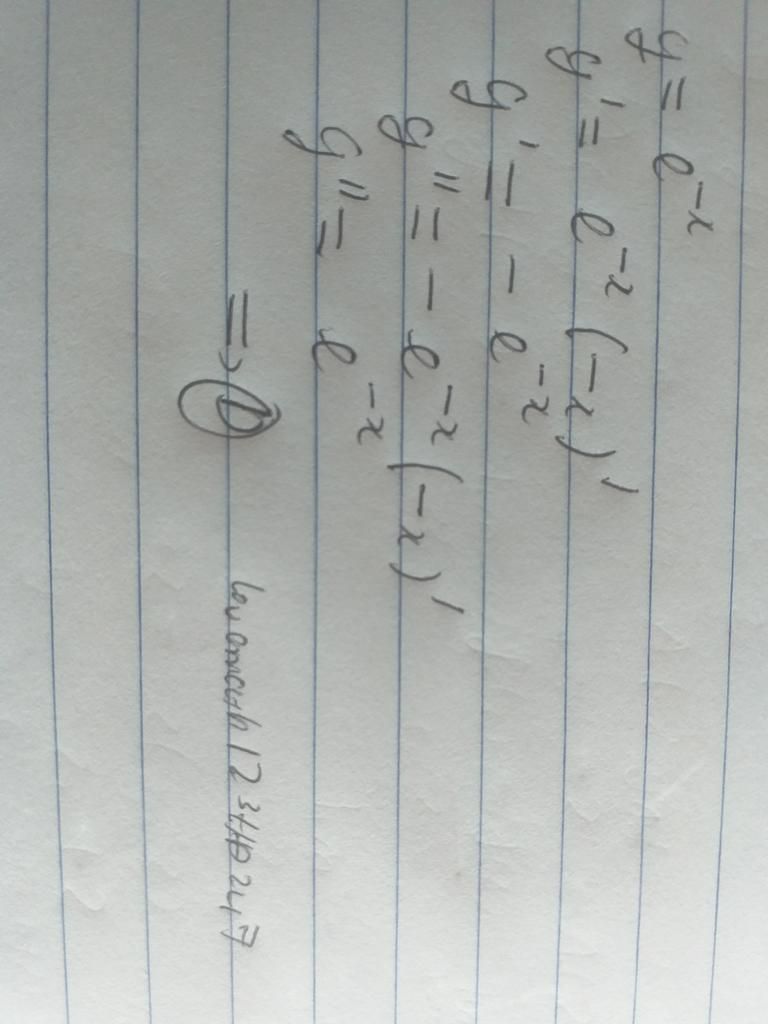 y = e^{-x}
y' = e^{-x} (-x)'
y' = - e^{-x}
y'' = - e^{-x} (-x)'
y'' = e^{-x}
=>